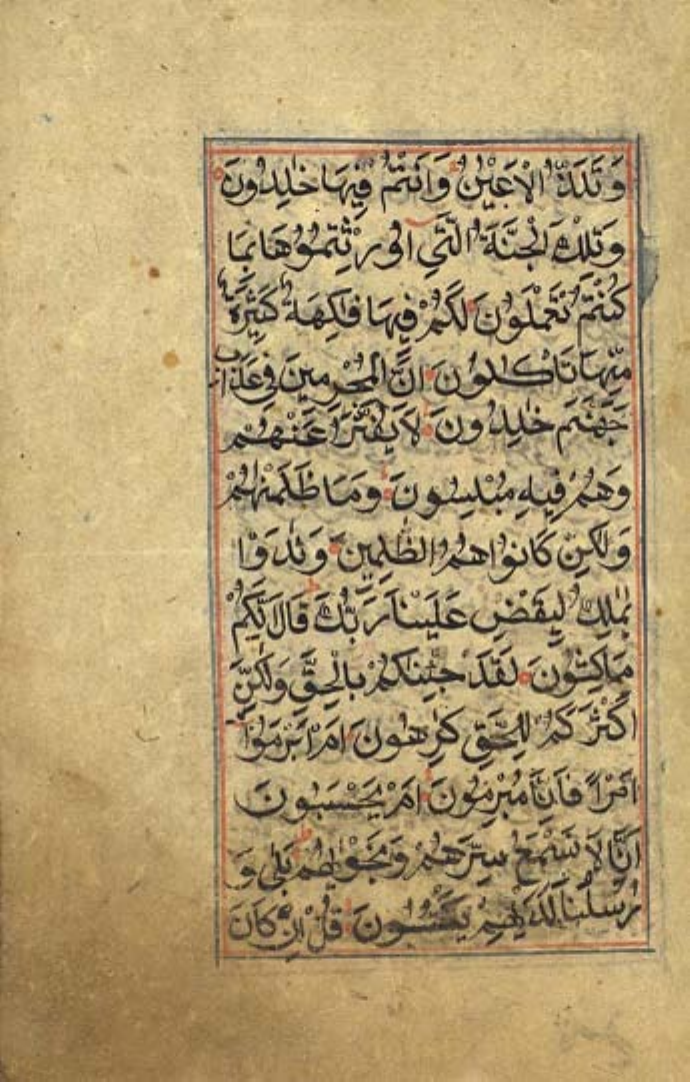 وَتَلَذُّ الْاَعْيُنُ وَاَنْتُمْ فِيْهَا خٰلِدُوْنَ
وَتِلْكَ الْجَنَّةُ الَّتِيْ اُوْرِثْتُمُوْهَا بِمَا
كُنْتُمْ تَعْمَلُوْنَ لَكُمْ فِيْهَا فَاكِهَةٌ كَثِيْرَةٌ
مِّنْهَا تَاْكُلُوْنَ اِنَّ الْمُجْرِمِيْنَ فِيْ عَذَابِ
جَهَنَّمَ خٰلِدُوْنَ لَا يُفَتَّرُ عَنْهُمْ
وَهُمْ فِيْهِ مُبْلِسُوْنَ وَمَا ظَلَمْنٰهُمْ
وَلٰكِنْ كَانُوْا هُمُ الظّٰلِمِيْنَ وَنَادَوْا
يٰمٰلِكُ لِيَقْضِ عَلَيْنَا رَبُّكَ قَالَ اِنَّكُمْ
مَاكِثُوْنَ لَقَدْ جِئْنٰكُمْ بِالْحَقِّ وَلٰكِنَّ
اَكْثَرَكُمْ لِلْحَقِّ كٰرِهُوْنَ اَمْ اَبْرَمُوْا
اَمْرًا فَاِنَّا مُبْرِمُوْنَ اَمْ يَحْسَبُوْنَ
اَنَّا لَا نَسْمَعُ سِرَّهُمْ وَنَجْوٰىهُمْ بَلٰى وَ
رُسُلُنَا لَدَيْهِمْ يَكْتُبُوْنَ قُلْ اِنْ كَانَ